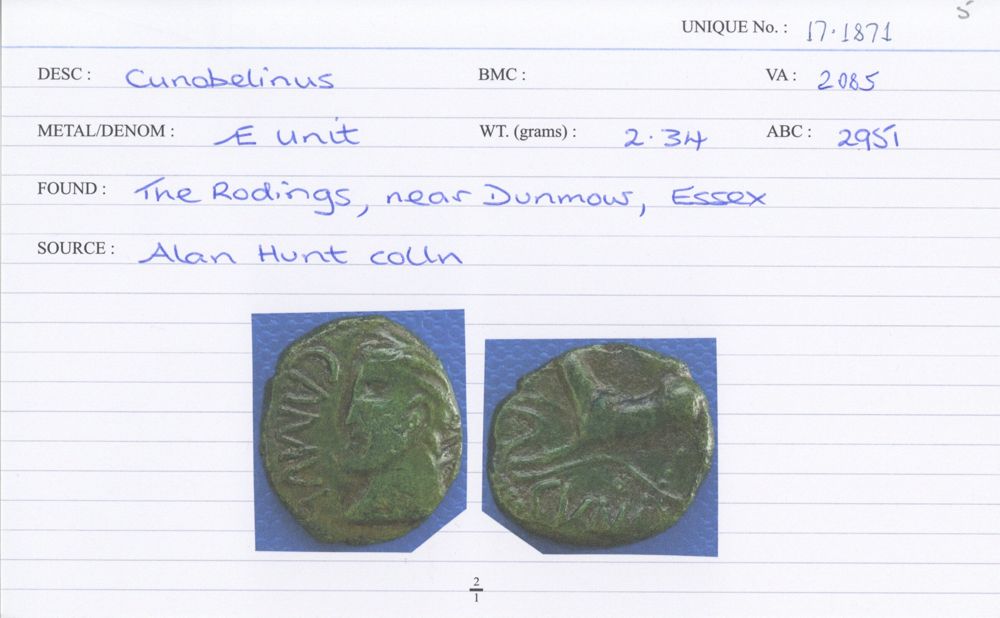 5
UNIQUE No. : 17.1871
DESC : Cunobelinus BMC : VA : 2085
METAL/DENOM : Æ unit WT. (grams) : 2.34 ABC : 2951
FOUND : The Rodings, near Dunmow, Essex
SOURCE : Alan Hunt colln
2
1